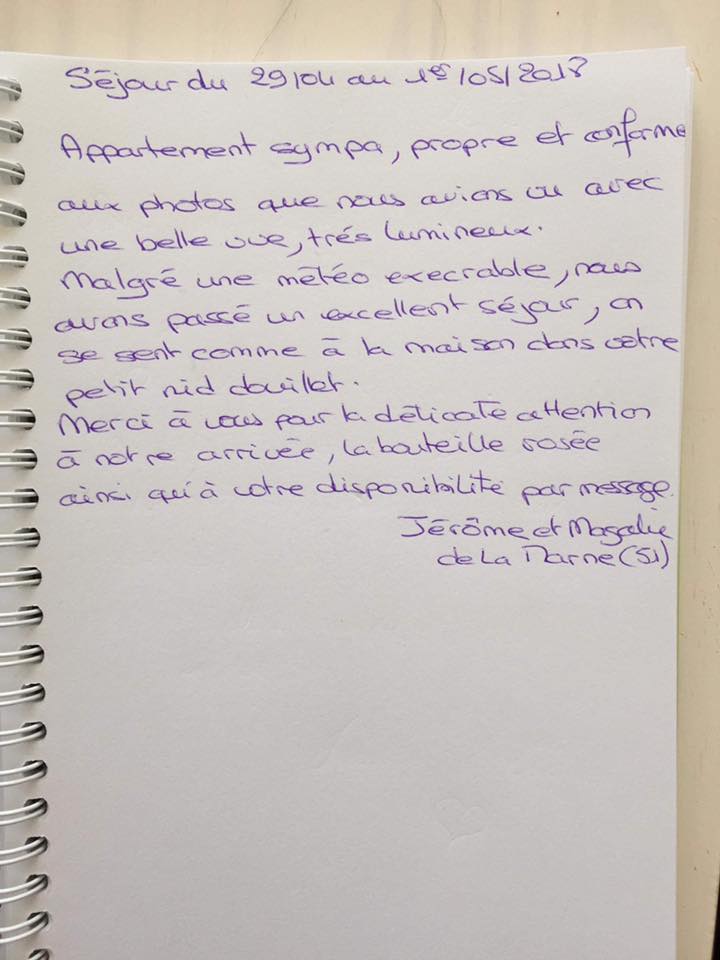 Séjour du 29/04 au 1er/05/2018
Appartement sympa, propre et conforme
aux photos que nous avions vu avec
une belle vue, trés lumineux.
Malgré une météo execrable, nous
avons passé un excellent séjour, on
se sent comme à la maison dans votre
petit nid douillet.
Merci à vous pour la délicate attention
à notre arrivée, la bouteille rosée
ainsi qu'à votre disponibilité par message.
Jérôme et Magalie
de La Marne (51)